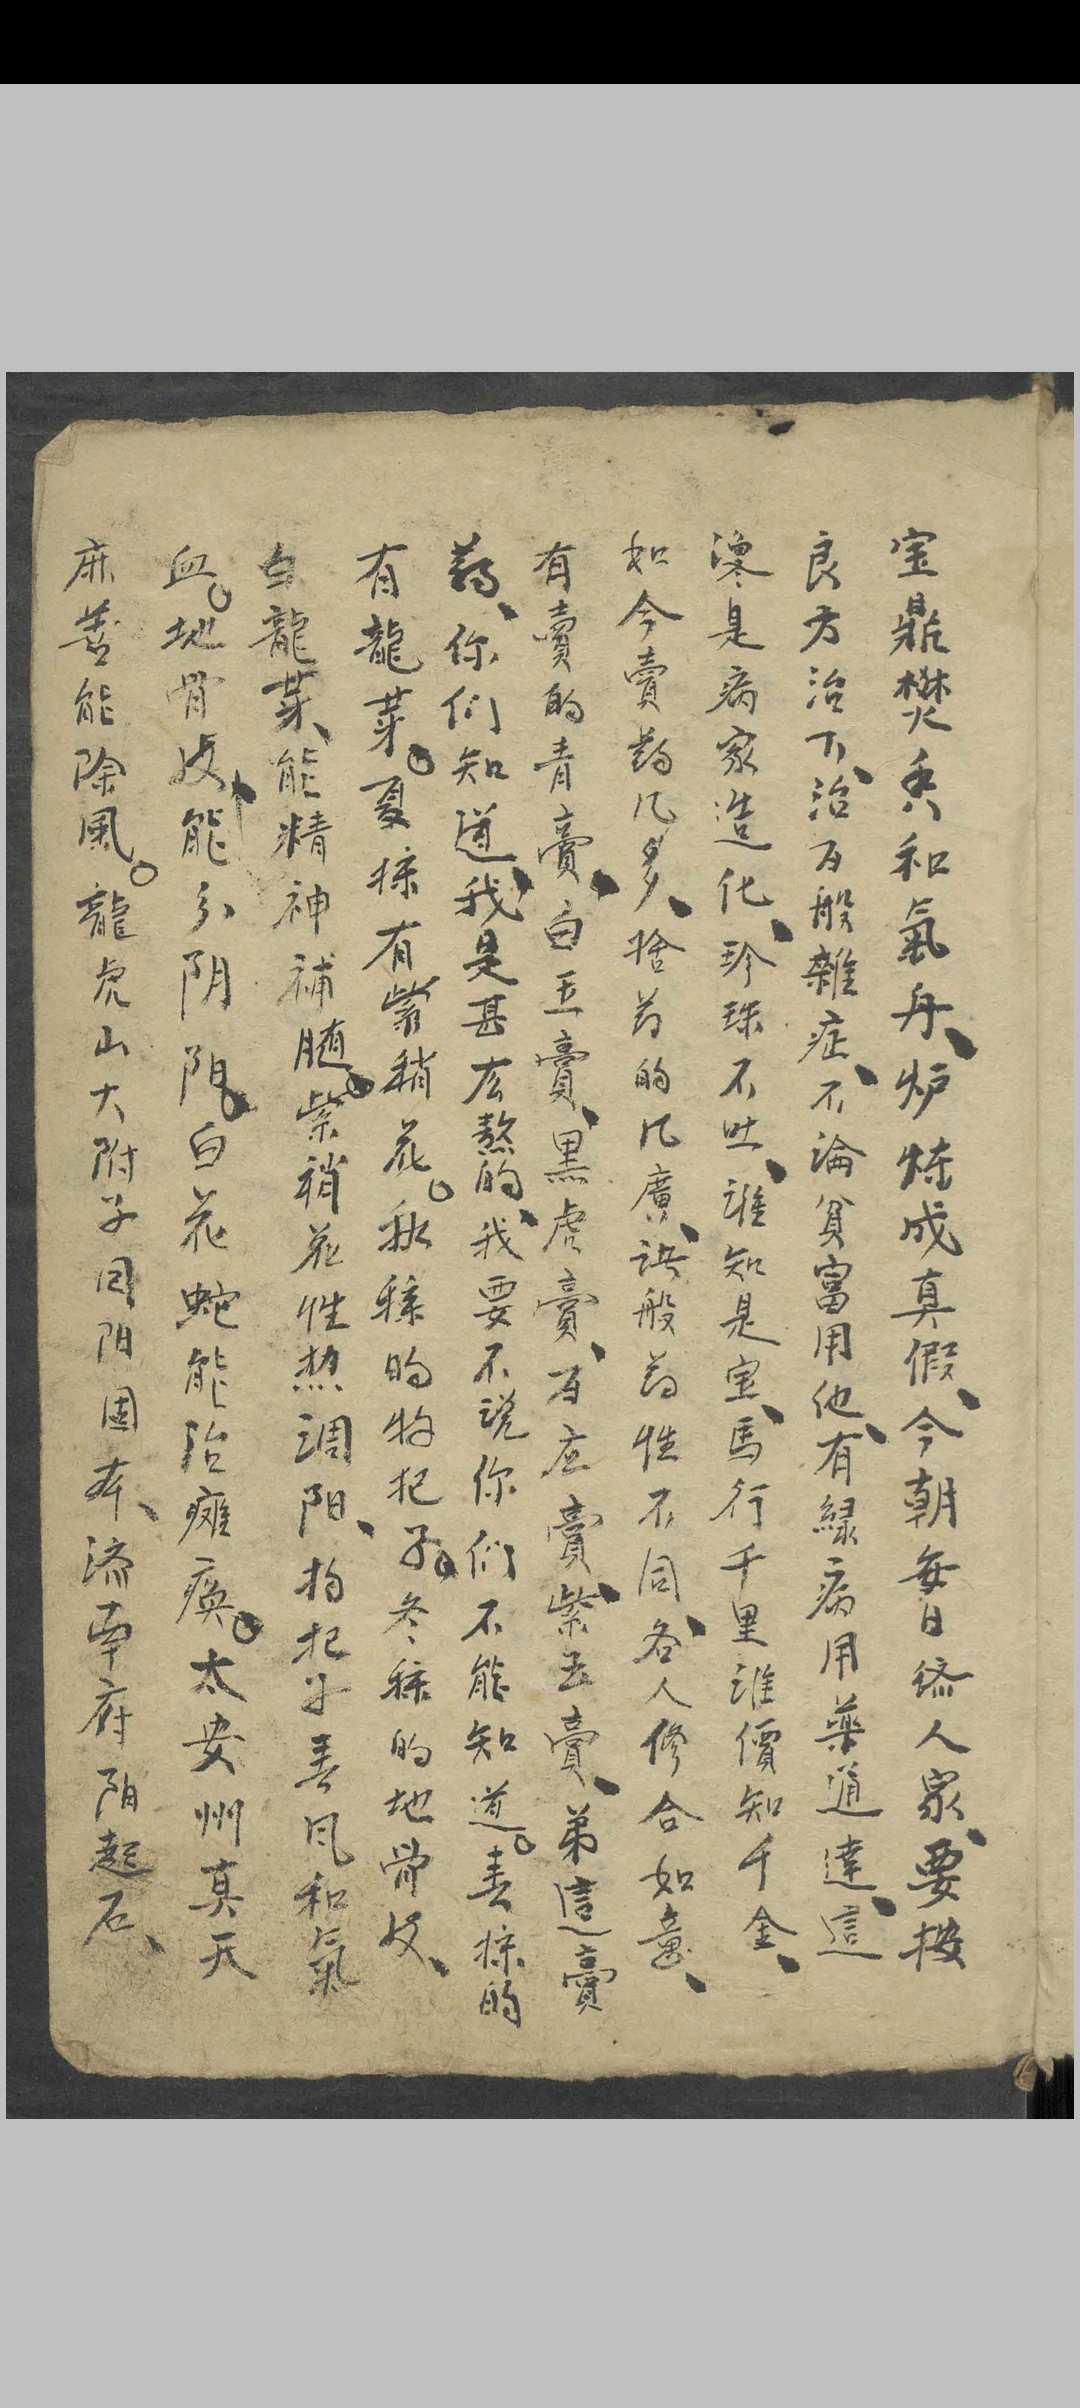 宝鼎焚香和氣丹、炉煉成真假、今朝每日済人家、要按
良方治下、治百般雜症、不論貧富用他、有緑病用藥通達、這
是病家造化、珍珠不吐、誰知是宝、馬行千里誰價知千金、
如今賣药几多、捨药的几廣、般药性不同、各人修合如意、
有賣的青膏、白玉膏、黒虎膏、百应膏、紫玉膏、弟這膏
药、你們知道我是甚広熬的、我要不說你們不能知道。春採的
有龍芽。夏採有紫稍花。秋採的枸杞子。冬採的地骨皮、
白龍芽、能精神補随。紫稍花性热調阳、枸杞子春风和氣
血。地骨皮、能分阴阳。白花蛇能治癱瘓。太安州真天
麻善能除風。龍虎山大附子回阳固本、済南府阳起石、